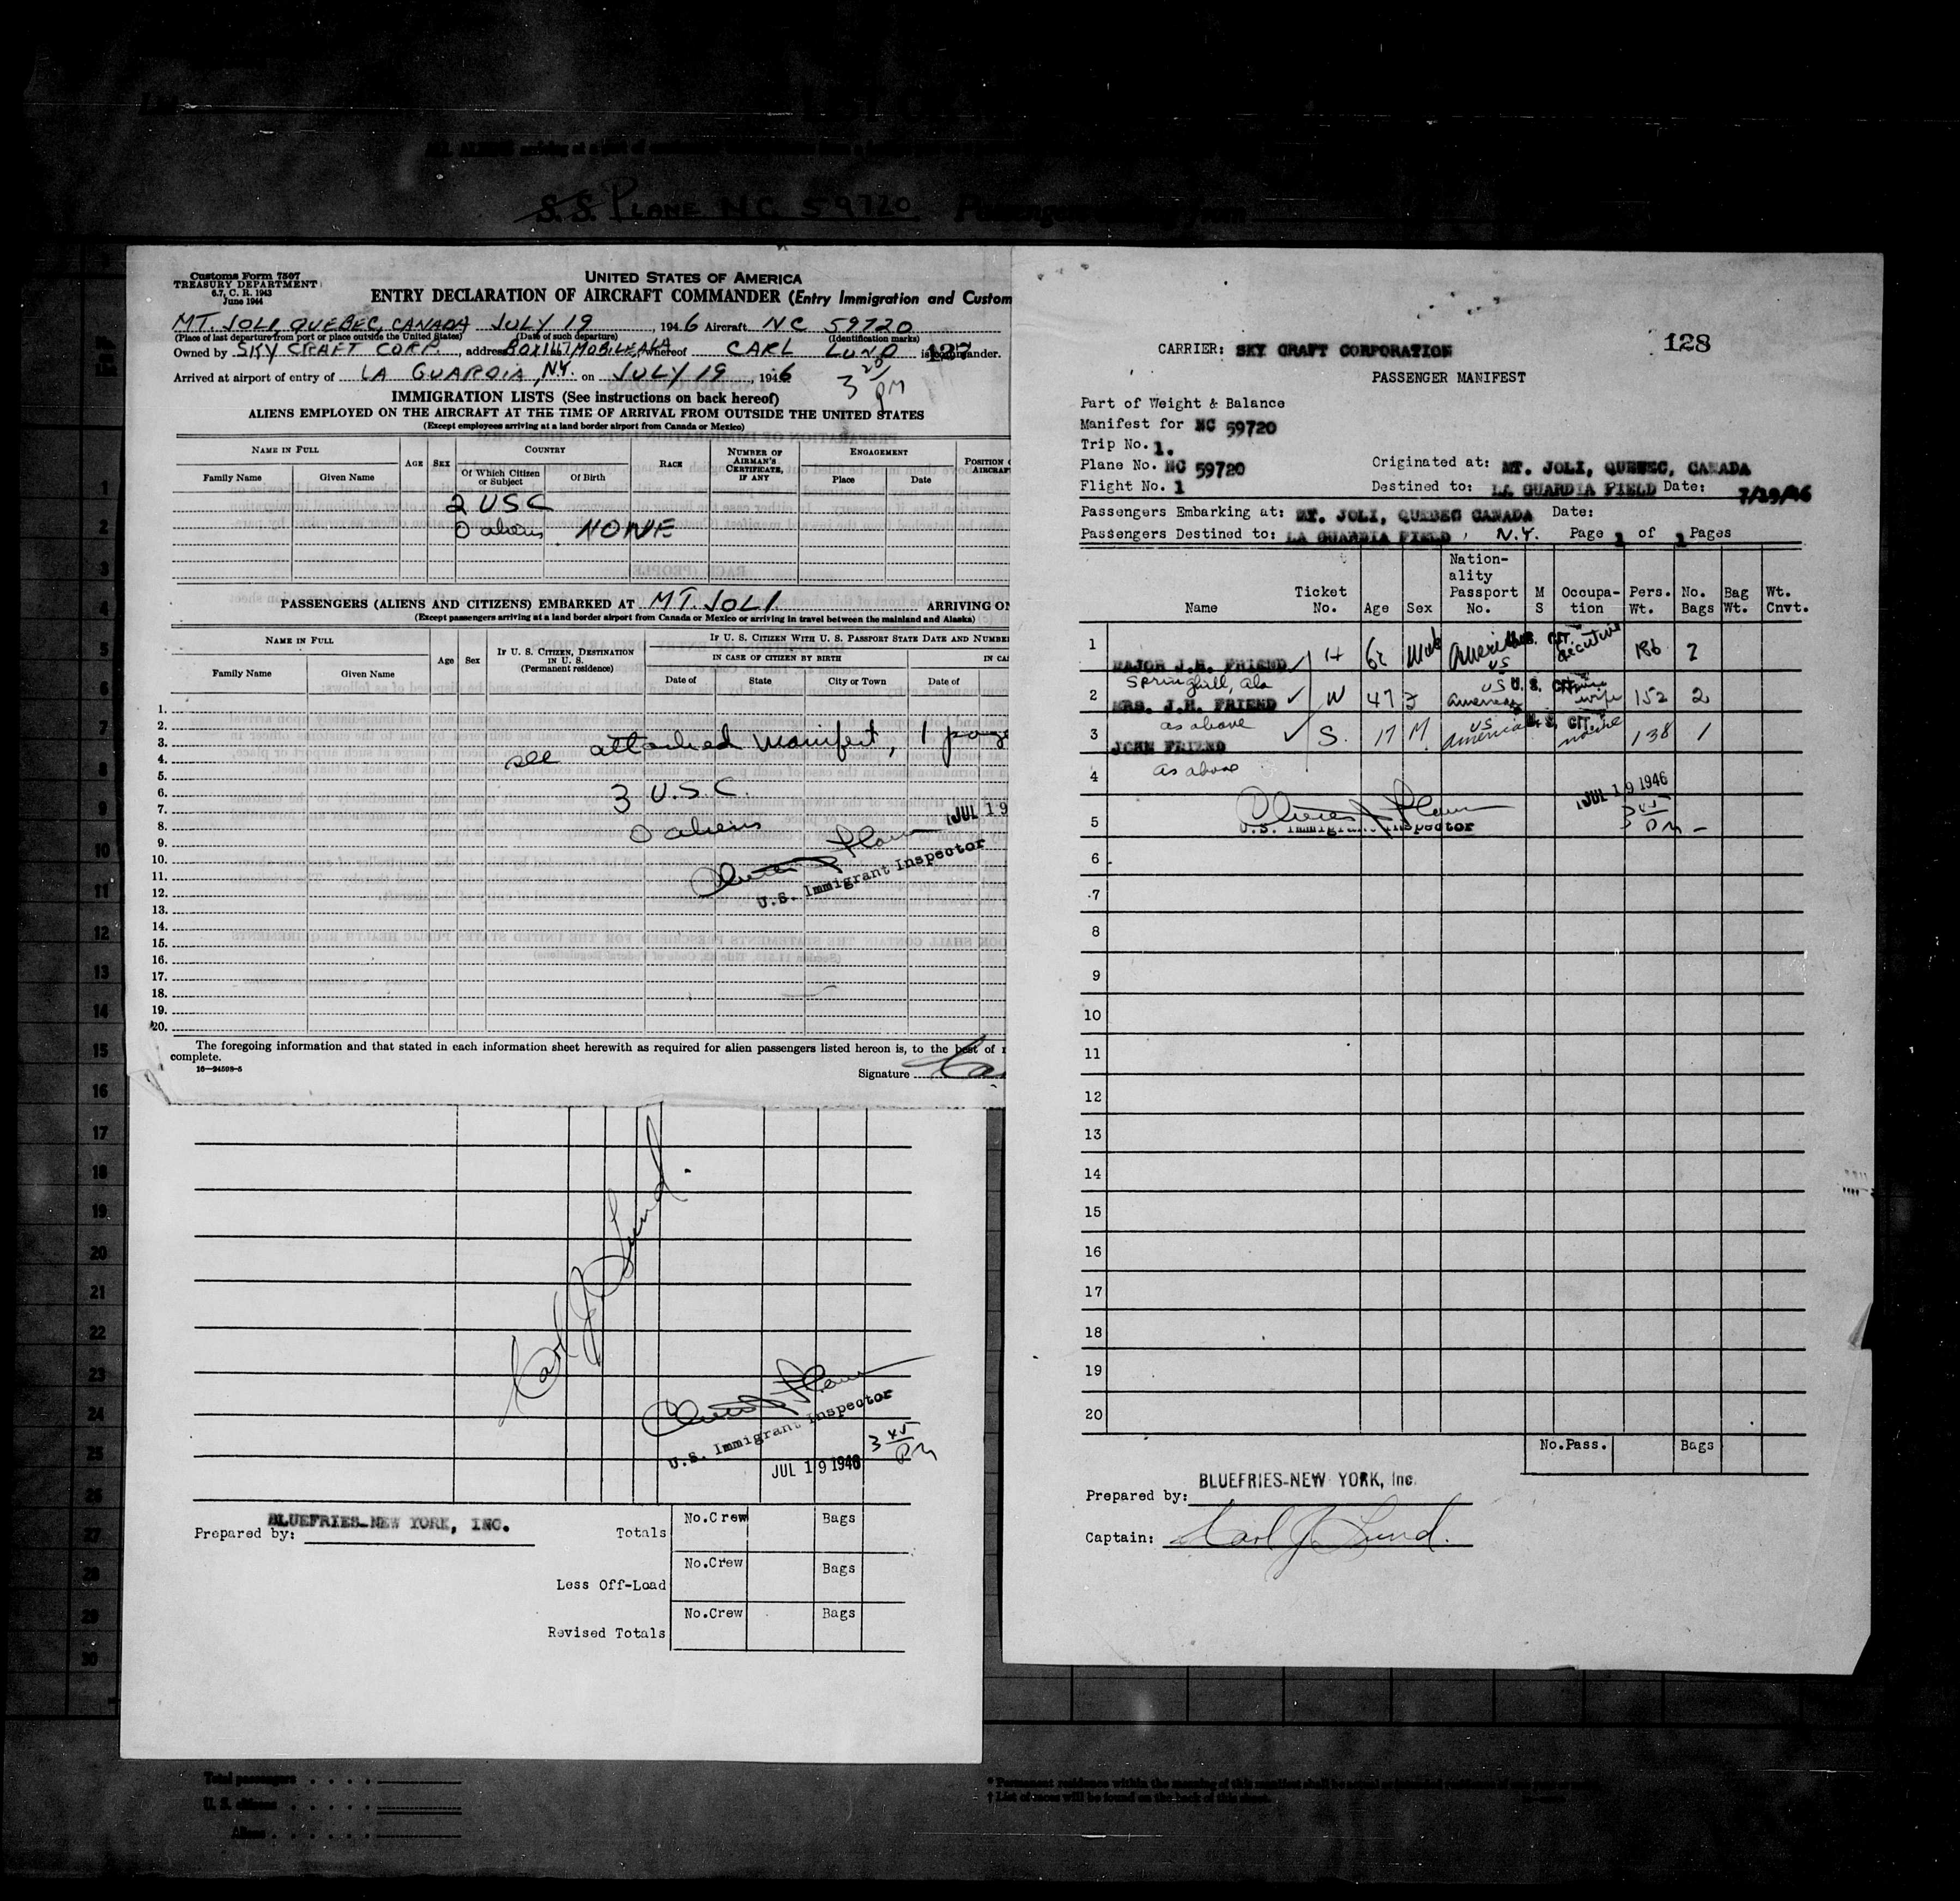 S.S. PLANE NC 59720 Passengers sailing from
Customs Form 7507
TREASURY DEPARTMENT
6.7, C. R. 1943
June 1944
UNITED STATES OF AMERICA
ENTRY DECLARATION OF AIRCRAFT COMMANDER (Entry Immigration and Custom
MT. JOLI, QUEBEC, CANADA JULY 19, 1946 Aircraft NC 59720
(Place of last departure from port or place outside the United States) (Date of such departure) (Identification marks)
Owned by SKY CRAFT CORP., address BOX 1147 MOBILE ALA whereof CARL LUND is commander.
127
Arrived at airport of entry of LA GUARDIA, N.Y. on JULY 19, 1946 3 20 PM
IMMIGRATION LISTS (See instructions on back hereof)
ALIENS EMPLOYED ON THE AIRCRAFT AT THE TIME OF ARRIVAL FROM OUTSIDE THE UNITED STATES
(Except employees arriving at a land border airport from Canada or Mexico)
NAME IN FULL AGE SEX COUNTRY RACE NUMBER OF AIRMAN'S CERTIFICATE, IF ANY ENGAGEMENT POSITION AIRCRAF
Family Name Given Name Of Which Citizen or Subject Of Birth Place Date
2 USC
0 aliens NONE
PASSENGERS (ALIENS AND CITIZENS) EMBARKED AT MT. JOLI ARRIVING ON
(Except passengers arriving at a land border airport from Canada or Mexico or arriving in travel between the mainland and Alaska)
NAME IN FULL Age Sex IF U. S. CITIZEN, DESTINATION IN U. S. (Permanent residence) IF U. S. CITIZEN WITH U. S. PASSPORT STATE DATE AND NUMBE
IN CASE OF CITIZEN BY BIRTH IN CA
Family Name Given Name Date of State City or Town Date of
1.
2.
3. see attached manifest, 1 page
4.
5.
6. 3 U.S.C.
7. JUL 19
8. 0 aliens
9.
10.
11. U.S. Immigrant Inspector
12.
13.
14.
15.
16.
17.
18.
19.
20.
The foregoing information and that stated in each information sheet herewith as required for alien passengers listed hereon is, to the best of
complete.
16—24598-5
Signature
Carl J Lund.
U.S. Immigrant Inspector
JUL 19 1946 3 45 PM
BLUEFRIES-NEW YORK, INC.
Prepared by:
Totals No.Crew Bags
Less Off-Load No.Crew Bags
Revised Totals No.Crew Bags
128
CARRIER: SKY CRAFT CORPORATION
PASSENGER MANIFEST
Part of Weight & Balance
Manifest for NC 59720
Trip No. 1.
Plane No. NC 59720 Originated at: MT. JOLI, QUEBEC, CANADA
Flight No. 1 Destined to: LA GUARDIA FIELD Date: 7/19/46
Passengers Embarking at: MT. JOLI, QUEBEC CANADA Date:
Passengers Destined to: LA GUARDIA FIELD, N.Y. Page 1 of 1 Pages
Name Ticket No. Age Sex Nation-ality Passport No. M S Occupa-tion Pers. Wt. No. Bags Bag Wt. Wt. Cnvt.
1 MAJOR J.H. FRIEND H Male American US U.S. CIT. executive 186 2
Springhill, Ala
2 MRS. J.H. FRIEND W 47 F American US U.S. CIT. wife 152 2
as above
3 JOHN FRIEND S. 17 M American US U.S. CIT. 138 1
as above
4
JUL 19 1946
5 U.S. Immigrant Inspector 3 45 PM
6
7
8
9
10
11
12
13
14
15
16
17
18
19
20
No.Pass. Bags
BLUEFRIES-NEW YORK, Inc.
Prepared by:
Captain: Carl J Lund.
Total passengers
U. S. citizens
Aliens
* Permanent residence within the meaning of this manifest shall be actual or intended residence of one year or more.
† List of races will be found on the back of this sheet.